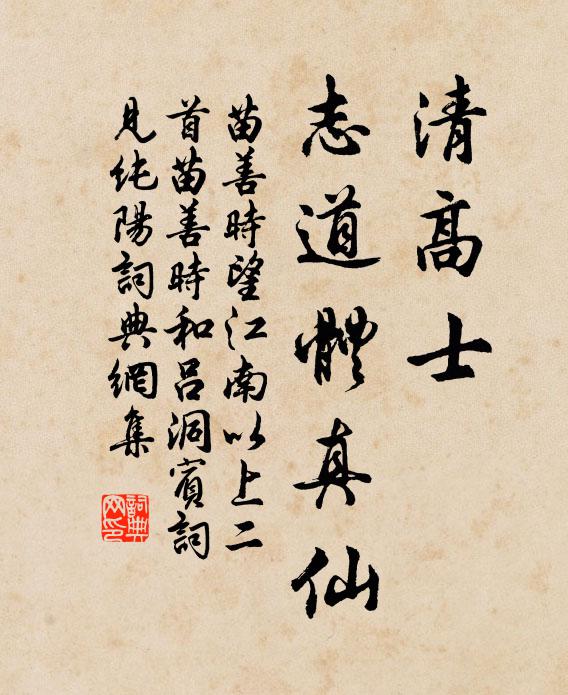 清高士
志道體真仙
苗善時望江南以上二
首苗善時和呂洞賓詞
見純陽詞典網集
詞典網印